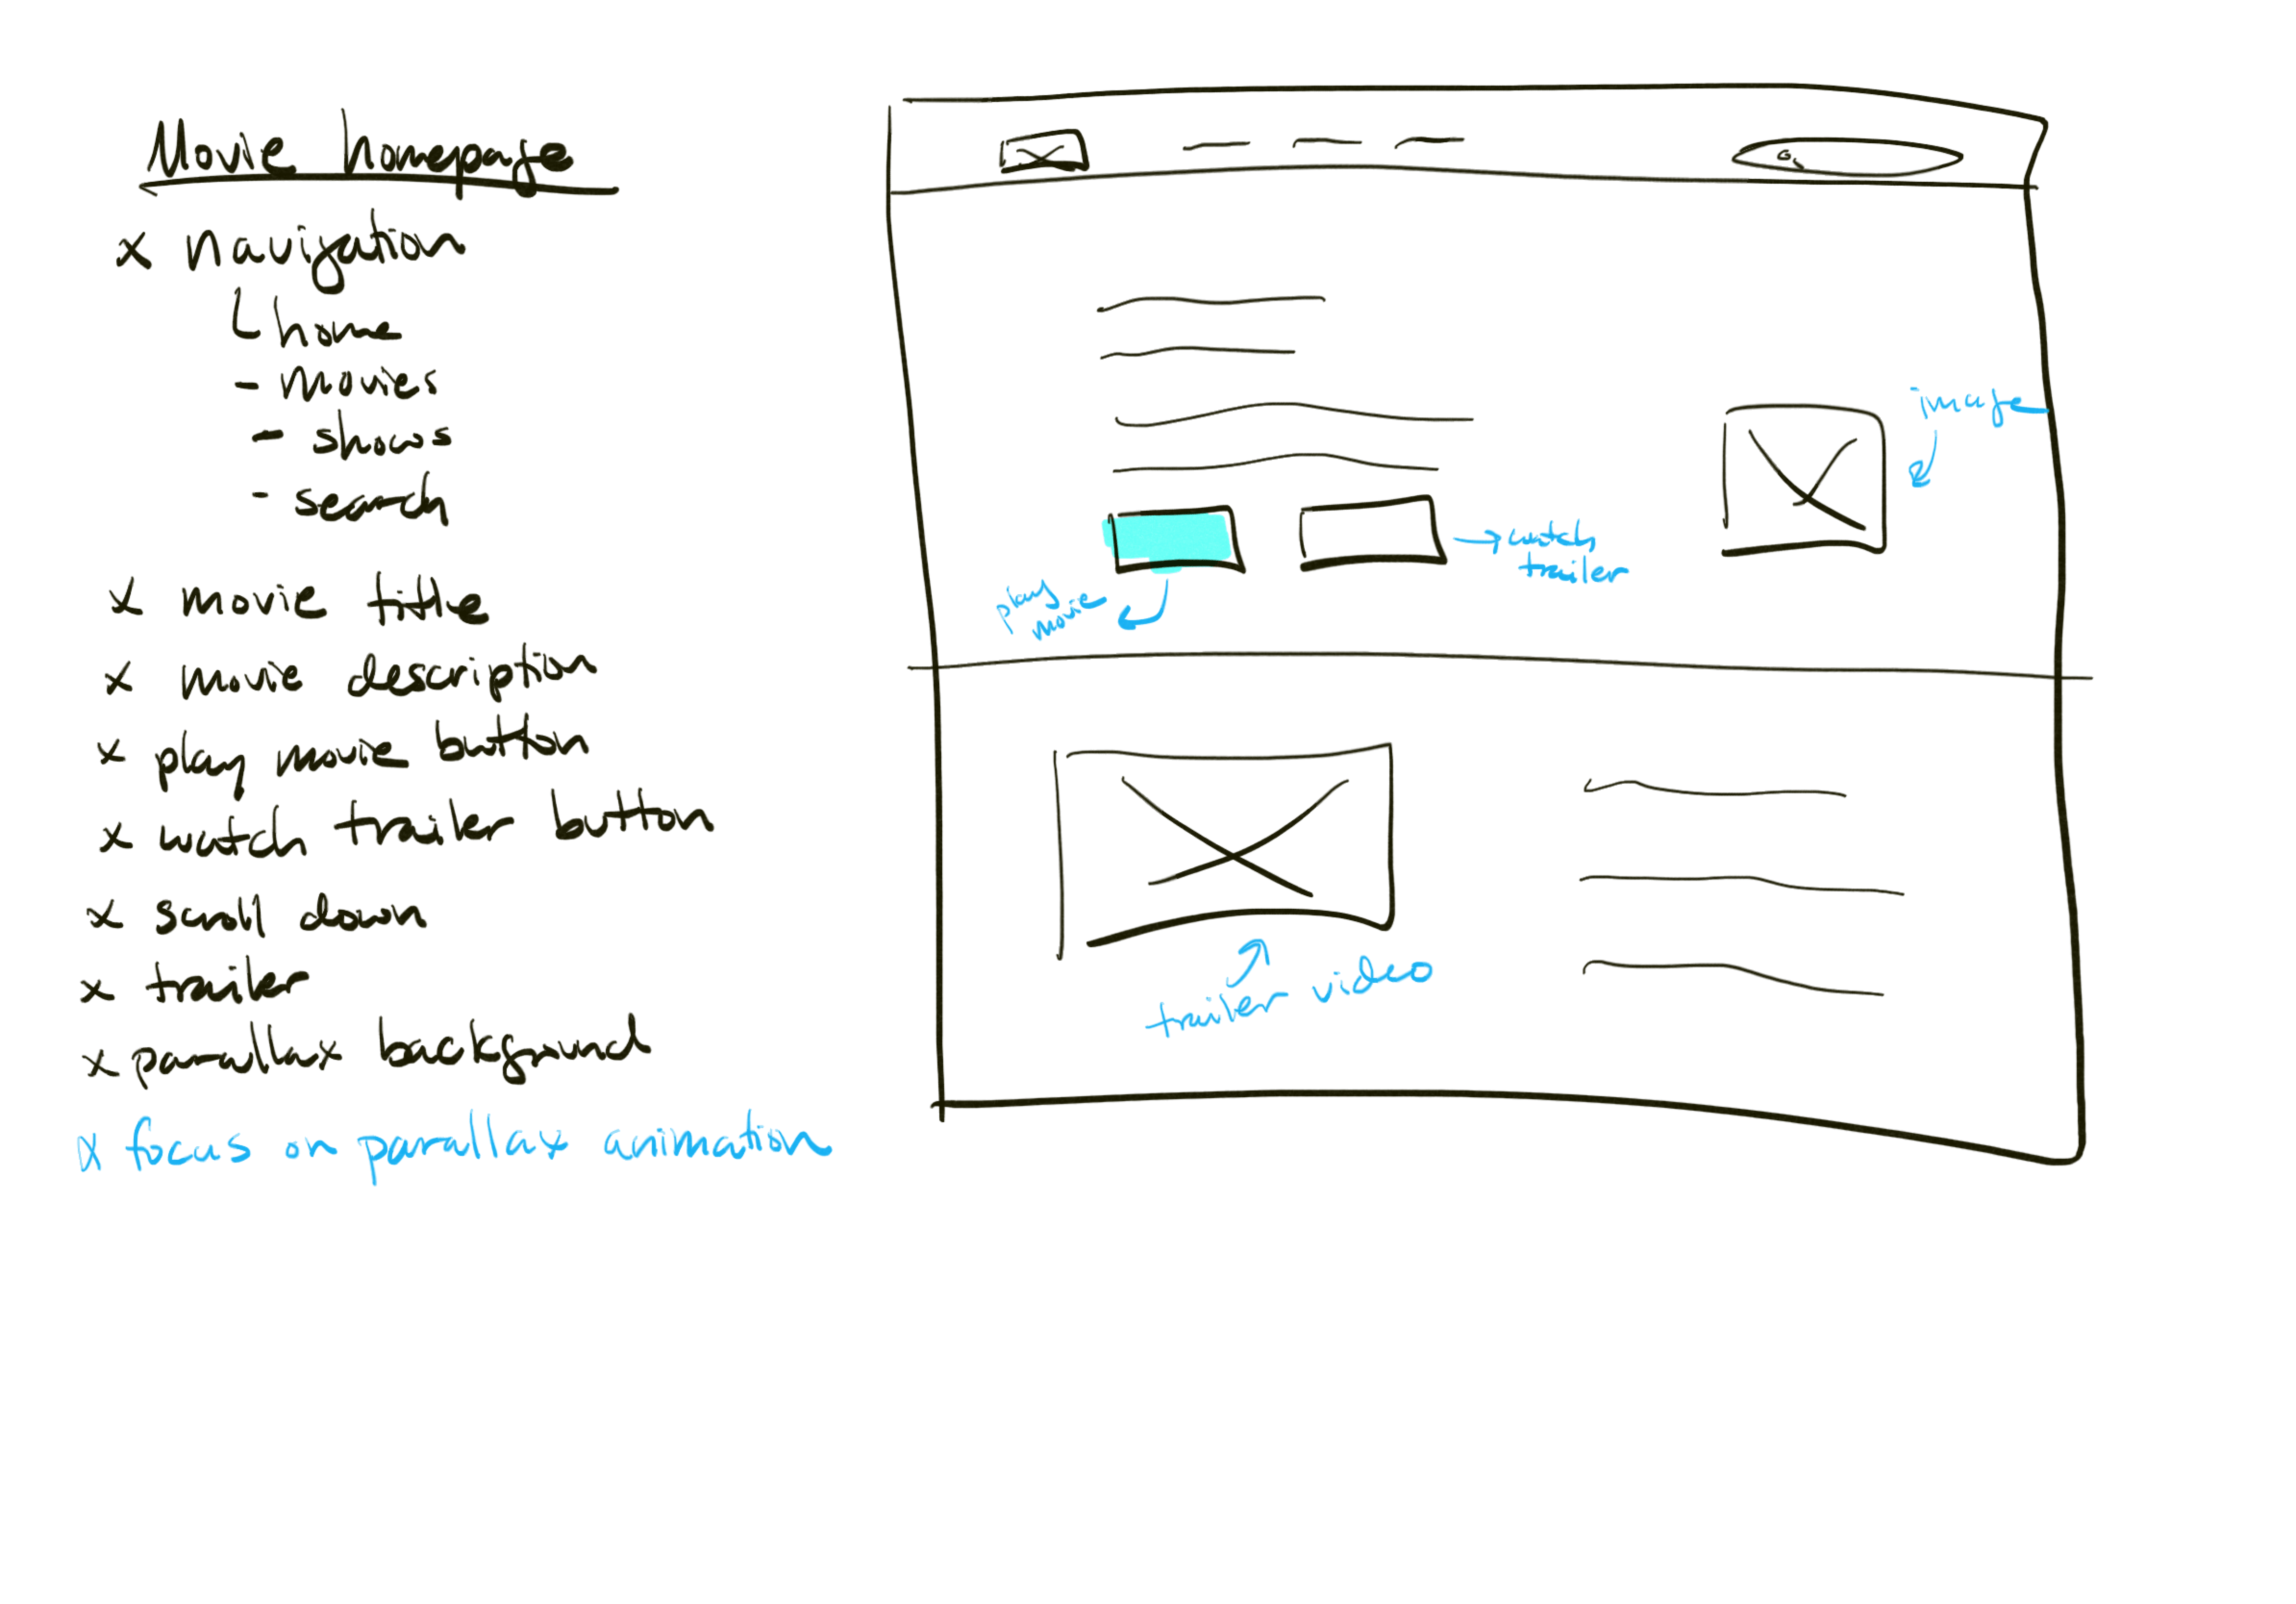 Movie homepage
x navigation
home
- movies
- shows
- search
x movie title
x movie description
x play movie button
x watch trailer button
x scroll down
x trailer
x parallax background
x focus on parallax animation
image
watch
trailer
play
movie
trailer video